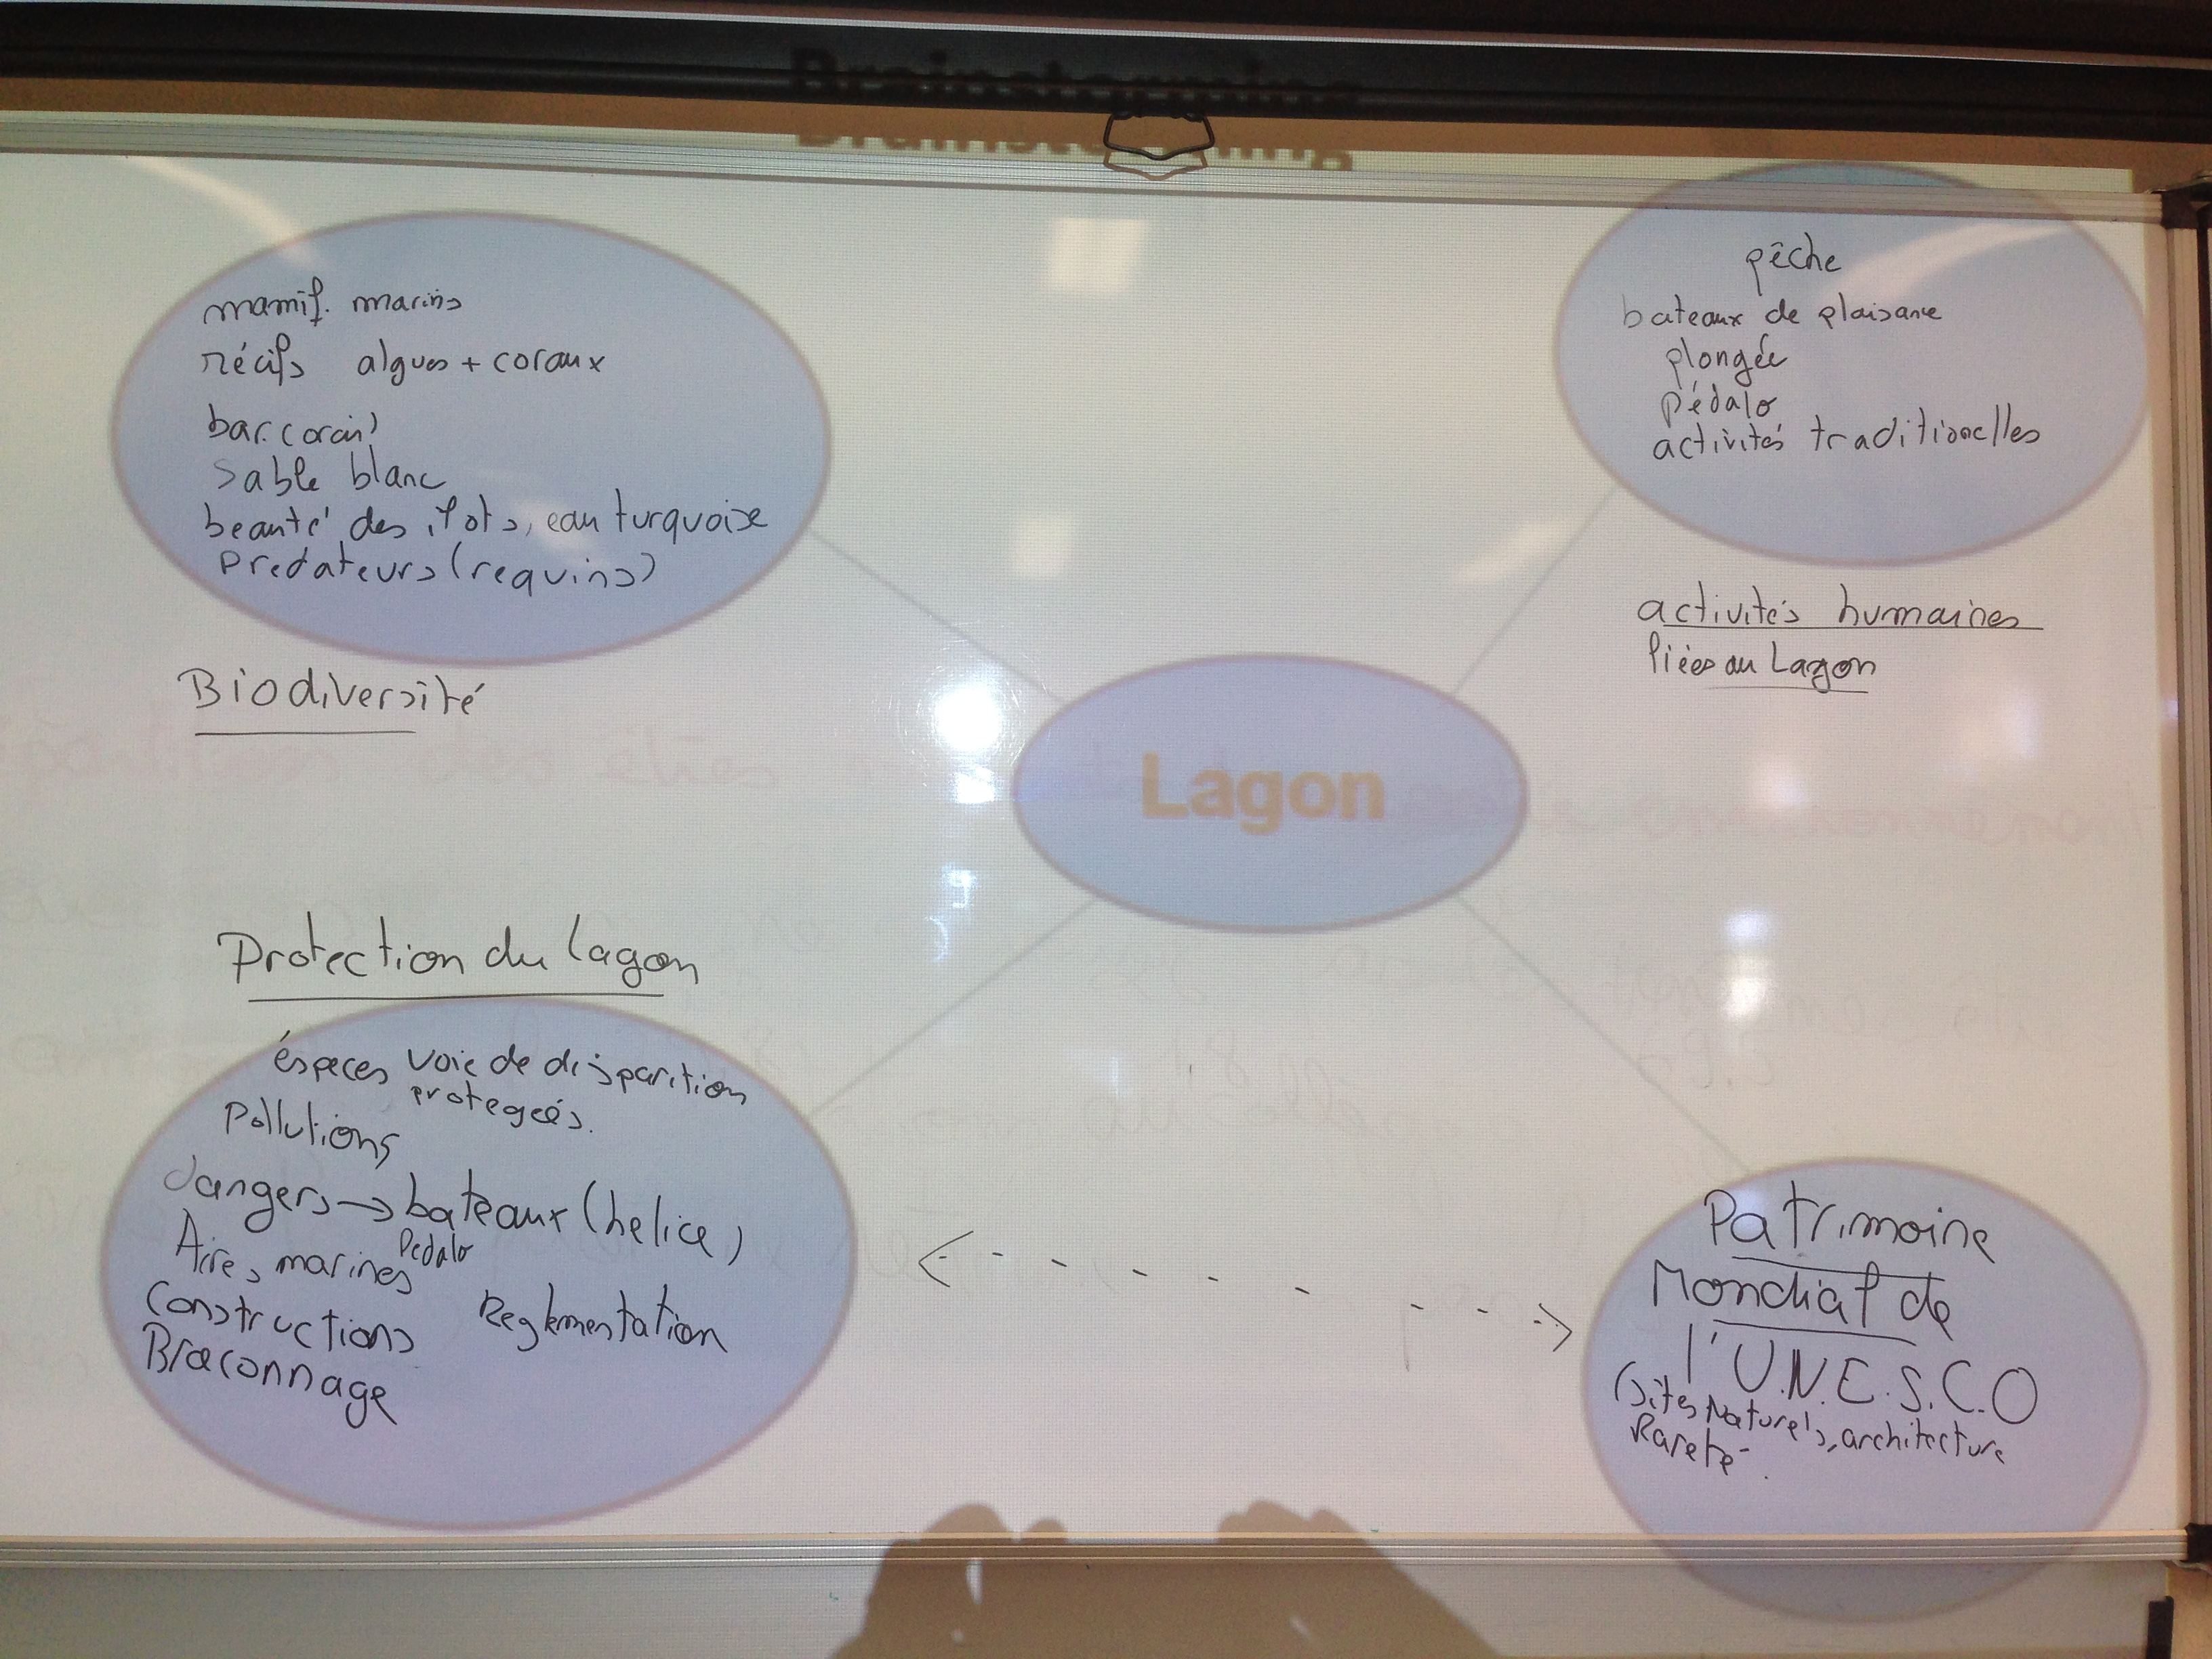 Brainstorming
mamif. marins
récifs algues + coraux
bar. corail
sable blanc
beauté des ilots, eau turquoise
Predateurs (requins)
Biodiversité
pêche
bateaux de plaisance
plongée
pédalo
activités traditionelles
activités humaines
liées au Lagon
Lagon
Protection du lagon
éspeces voie de disparition
protegeés.
Pollutions
dangers → bateaux (helice)
Pedalo
Aires marines
Constructions Reglementation
Braconnage
Patrimoine
Mondial de
l'U.N.E.S.C.O
(sites Naturels, architecture
Rareté